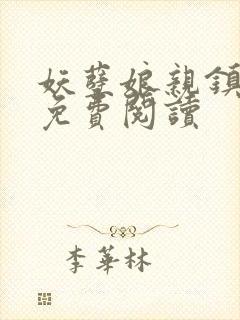 妖孽娘親鎮
免費閱讀
李華林